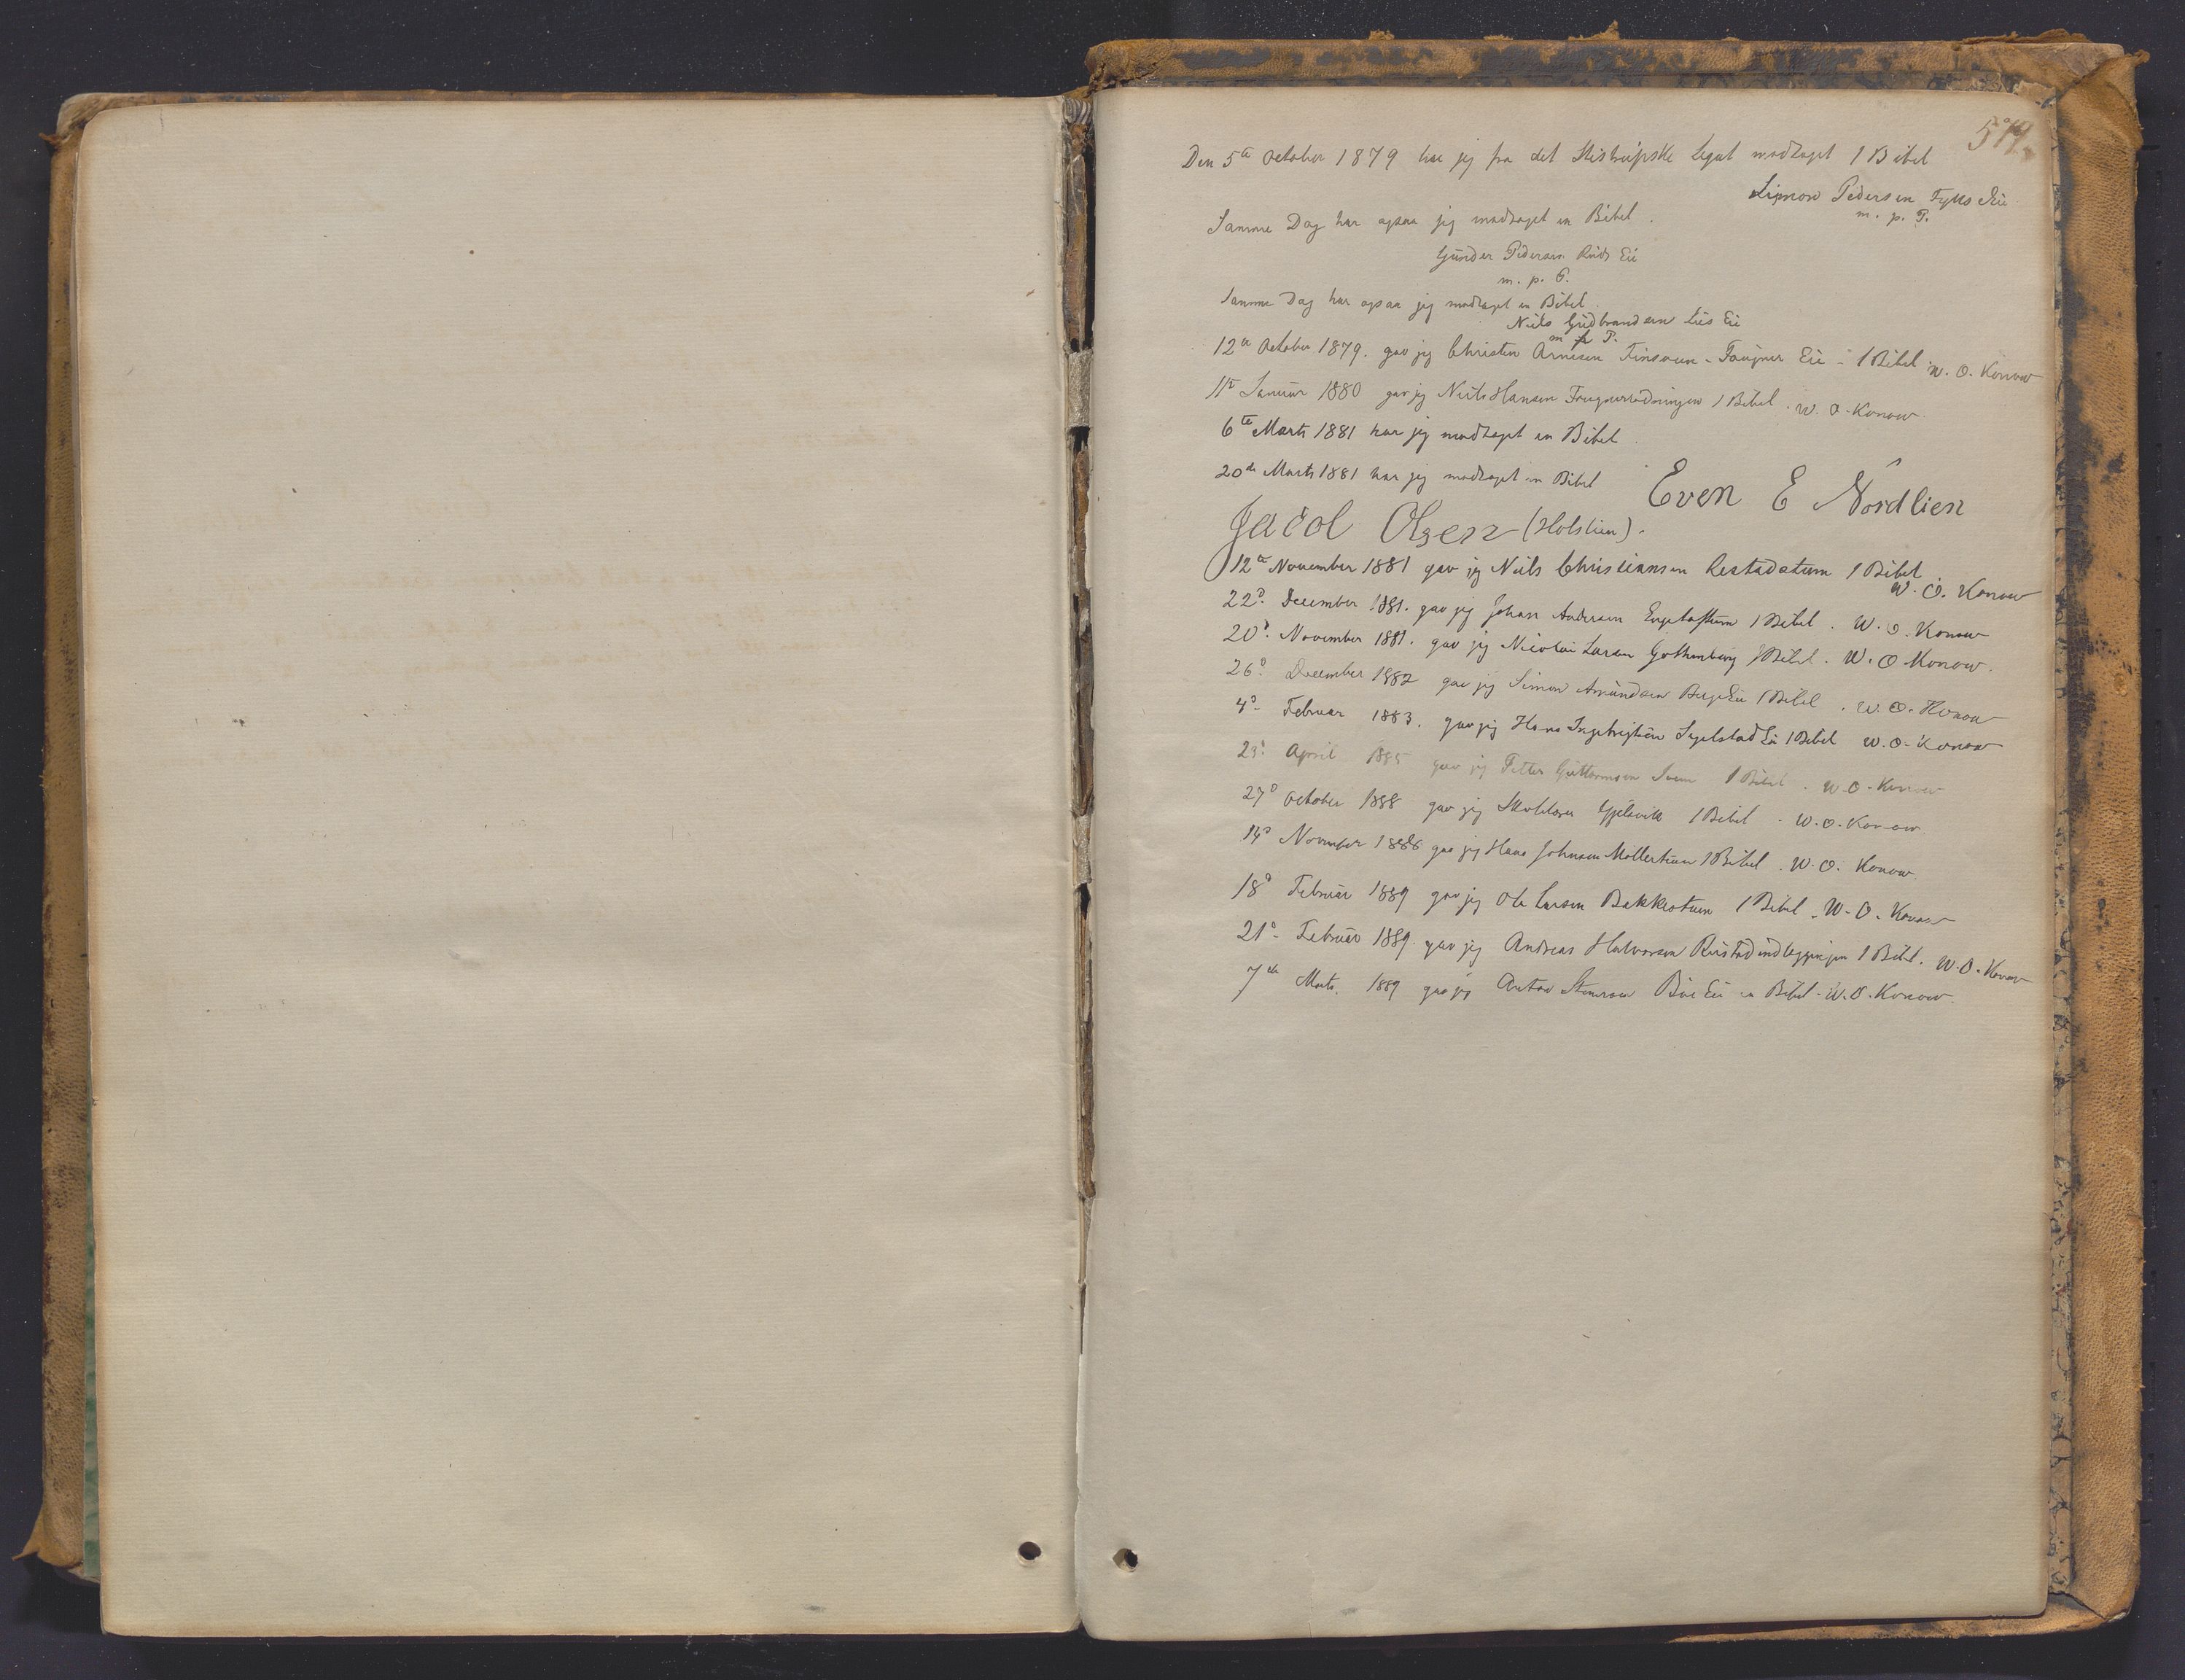 579.
Den 5te October 1879 har jeg fra det Stistrupske Legat modtaget 1 Bibel
Simon Pedersen Fyks Eie
m. p. P.
Samme Dag har ogsaa jeg modtaget en Bibel.
Gunder Pedersen Ruds Eie
m. p. P.
Samme Dag har ogsaa jeg modtaget en Bibel.
Niels Gudbrandsen Lies Eie
m p P.
12te October 1879. gav jeg Christen Arnesen Faugner Eie 1 Bibel W. O. Konow
11te Januar 1880 gav jeg Niels Hansen 1 Bibel. W. O. Konow
6te Marts 1881 har jeg modtaget en Bibel
20de Marts 1881 har jeg modtaget en Bibel Even E Nordlien
Jacob Olsen (Holstien).
12te November 1881 gav jeg Niels Christiansen 1 Bibel
W. O. Konow
22d. December 1881. gav jeg Johan Andersen 1 Bibel. W. O. Konow
20d. November 1881. gav jeg Nicolai Larsen Gothenborg 1 Bibel. W. O. Konow.
26d. December 1882 gav jeg Simon Amundsen Berge Eie 1 Bibel. W. O. Konow
4d. Februar 1883. gav jeg Hans 1 Bibel W. O. Konow
23d. April 1885 gav jeg Petter Guttormsen 1 Bibel. W. O. Konow
27d October 1888 gav jeg Gjøvik 1 Bibel. W. O. Konow
14d November 1888 gav jeg Hans Johnsen Møllerstuen 1 Bibel. W. O. Konow.
18d Februar 1889 gav jeg Ole Larsen Bakkestuen 1 Bibel. W. O. Konow
21d. Februar 1889. gav jeg Andreas Halvorsen 1 Bibel. W. O. Konow
7de Marts. 1889 gav jeg Anton Eie en Bibel. W. O. Konow.